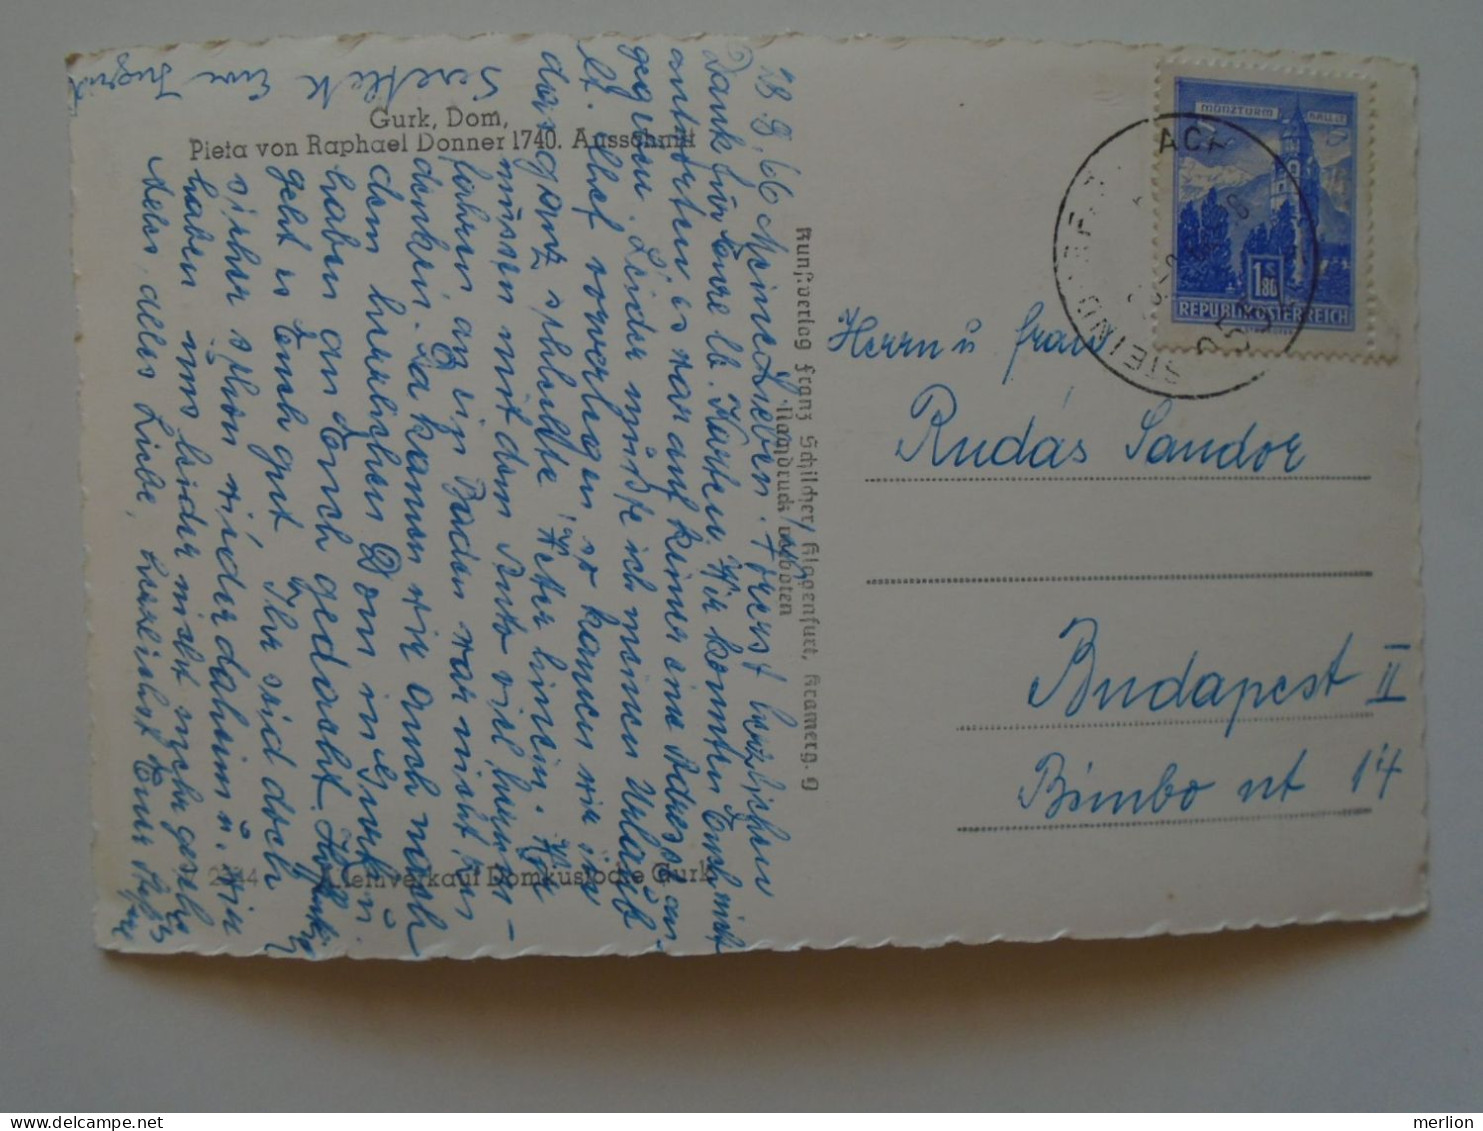 Gurk, Dom,
Pieta von Raphael Donner 1740. Ausschnitt
28. 8. 66 Meine Lieben! Zuerst herzlichen
Dank für Eure lb. Karte. Wir konnten Euch nicht
antworten es war auf keiner eine Adresse an-
gegeben. Leider mußte ich meinen Urlaub
lt. Chef vorverlegen, so kamen wir in
das ganz schlechte Wetter hinein. Wir
müssen mit dem Auto viel herum-
fahren, an ein Baden war nicht zu
denken. Da kamen wir auch nach
dem herrlichen Dom in Gurk u.
haben an Euch gedacht. Hoffentlich
geht es Euch gut. Ihr seid doch
sicher schon wieder daheim u. wir
haben uns leider nicht mehr gesehen
Alles, alles Liebe, herzlichst Eure
Kleinverkauf Domkustodie Gurk
Kunstverlag Franz Schilcher, Klagenfurt, Kramerg. 9
Nachdruck verboten
MÜNZTURM HALL i.T.
1.80
REPUBLIK ÖSTERREICH
STEIND
Herrn u Frau
Rudás Sandor
Budapest II
Bimbo ut 14
merlion